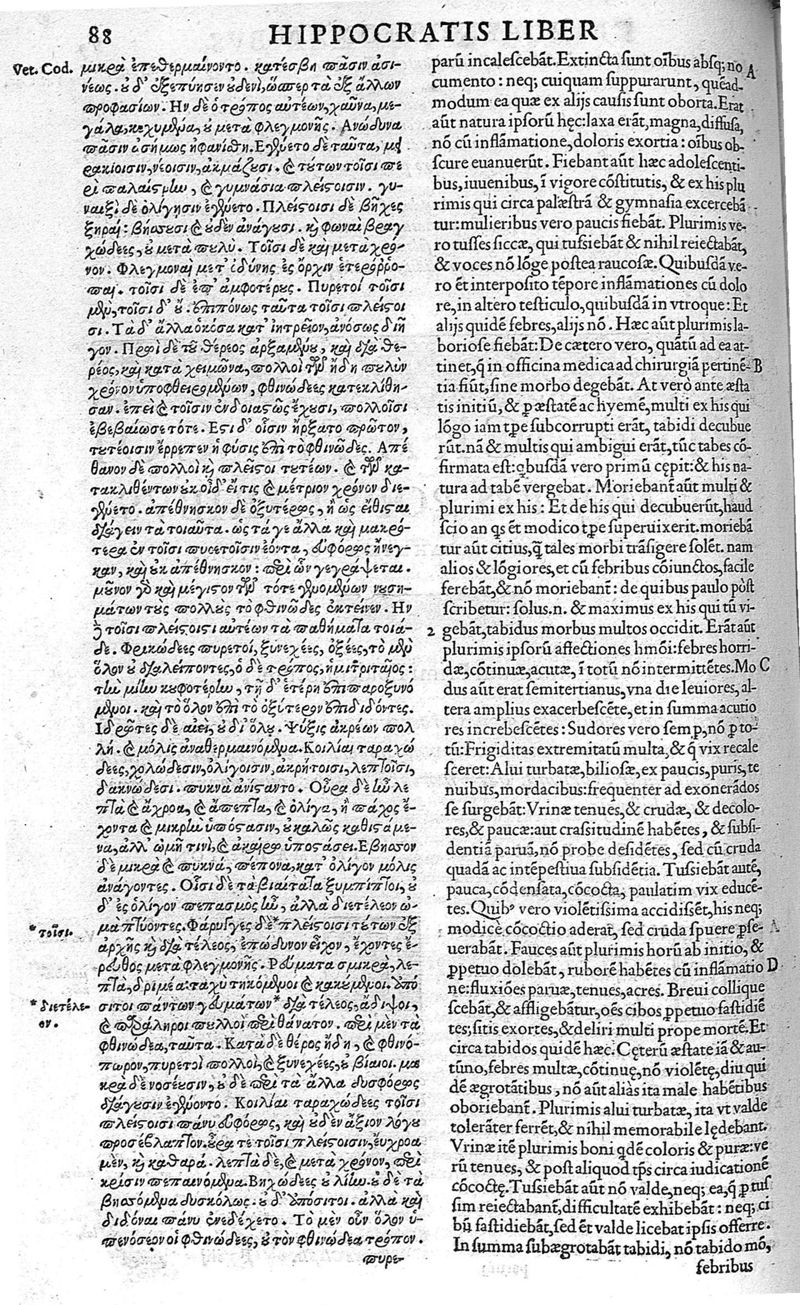 88 HIPPOCRATIS LIBER
Vet. Cod.
μικρὰ ἐπεθερμαίνοντο. κατέσβη πᾶσιν ἀσι-
νέως. οὐδ' ἐξεπύησεν οὐδενὶ, ὥσπερ τὰ ἐξ ἄλλων
προφασίων. Ην δὲ ὁ τρόπος αὐτέων, χαῦνα, με-
γάλα, κεχυμένα, οὐ μετὰ φλεγμονῆς. Ανώδυνα
πᾶσιν ἀσήμως ἠφανίσθη. Εγένετο δὲ ταῦτα, μει
ρακίοισιν, νέοισιν, ἀκμάζουσι. καὶ τούτων τοῖσι πε
ρὶ παλαίστρην, καὶ γυμνάσια πλείστοισιν. γυ-
ναιξὶ δὲ ὀλίγησιν ἐγένετο. Πλείστοισι δὲ βῆχες
ξηραὶ: βήσσουσι καὶ οὐδὲν ἀνάγουσι. καὶ φωναὶ βραγ
χώδεες, οὐ μετὰ πουλύ. Τοῖσι δὲ καὶ μετὰ χρό-
νον. Φλεγμοναὶ μετ' ὀδύνης ἐς ὄρχιν ἑτερόῤῥο-
ποι. τοῖσι δὲ ἐπ' ἀμφοτέρους. Πυρετοὶ τοῖσι
μὲν, τοῖσι δ' οὔ. ἐπιπόνως ταῦτα τοῖσι πλείστοι
σι. Τὰ δ' ἄλλα ὁκόσα κατ' ἰητρεῖον, ἀνόσως διῆ
γον. Πρωῒ δὲ τοῦ θέρεος ἀρξαμένου, καὶ διὰ θέ-
ρεος, καὶ κατὰ χειμῶνα, πολλοὶ τῶν ἤδη πουλὺν
χρόνον ὑποφθειρομένων, φθινώδεες κατεκλίθη-
σαν. ἐπεὶ καὶ τοῖσιν ἐνδοιαστῶς ἔχουσι, πολλοῖσι
ἐβεβαίωσε τότε. Εστι δ' οἷσιν ἤρξατο πρῶτον,
τουτέοισιν ἔῤῥεπεν ἡ φύσις ἐπὶ τὸ φθινῶδες. Απέ
θανον δὲ πολλοὶ καὶ πλεῖστοι τουτέων. καὶ τῶν κα-
τακλιθέντων οὐκ οἶδ' εἴ τις καὶ μέτριον χρόνον διε-
γένετο. ἀπέθνησκον δὲ ὀξυτέρως, ἢ ὡς εἴθισται
διάγειν τὰ τοιαῦτα. ὡς τά γε ἄλλα καὶ μακρό-
τερα ἐν τοῖσι πυρετοῖσιν ἐόντα, εὐφόρως ἤνεγ-
καν, καὶ οὐκ ἀπέθνησκον: περὶ ὧν γεγράψεται.
μοῦνον γὰρ καὶ μέγιστον τῶν τότε γενομένων νουση-
μάτων τοὺς πολλοὺς τὸ φθινῶδες ἔκτεινεν. Ην
δὲ τοῖσι πλείστοισι αὐτέων τὰ παθήματα τοιά-
δε. Φρικώδεες πυρετοὶ, ξυνεχέες, ὀξέες, τὸ μὲν
ὅλον οὐ διαλείποντες, ὁ δὲ τρόπος, ἡμιτριταῖος:
τὴν μίην κουφοτέρην, τῇ δ' ἑτέρη ἐπιπαροξυνό
μενοι. καὶ τὸ ὅλον ἐπὶ τὸ ὀξύτερον ἐπιδιδόντες.
Ιδρῶτες δὲ αἰεὶ, οὐ δι' ὅλου. Ψύξις ἀκρέων πολ
λή. καὶ μόλις ἀναθερμαινόμενα. Κοιλίαι ταραχώ
δεες, χολώδεσιν, ὀλίγοισιν, ἀκρήτοισι, λεπτοῖσι,
δακνώδεσι. πυκνὰ ἀνίσταντο. Οὖρα δὲ ἦν λε
πτὰ καὶ ἄχροα, καὶ ἄπεπτα, καὶ ὀλίγα, ἢ πάχος ἔ-
χοντα καὶ μικρὴν ὑπόστασιν, οὐ καλῶς καθιστάμε-
να, ἀλλ' ὠμῆ τινὶ, καὶ ἀκαίρῳ ὑποστάσει. Εβησσον
δὲ μικρὰ καὶ πυκνὰ, πέπονα, κατ' ὀλίγον μόλις
ἀνάγοντες. Οἷσι δὲ τὰ βιαιότατα ξυμπίπτοι, οὐ
δ' ἐς ὀλίγον πεπασμὸς ἦν, ἀλλὰ διετέλεον ὠ-
μὰ πτύοντες. Φάρυγγες δὲ* πλείστοισι τουτέων ἐξ
*τοῖσι.
ἀρχῆς καὶ διὰ τέλεος, ἐπώδυνον εἶχον, ἔχοντες ἔ-
ρευθος μετὰ φλεγμονῆς. Ρεύματα σμικρὰ, λε-
πτὰ, δριμέα: ταχὺ τηκόμενοι καὶ κακούμενοι. ἀπό
σιτοι πάντων γευμάτων* διὰ τέλεος, ἄδιψοι,
*διετέλε-
ον.
καὶ παράληροι πολλοὶ περὶ θάνατον. περὶ μὲν τὰ
φθινώδεα, ταῦτα. Κατὰ δὲ θέρος ἤδη, καὶ φθινό-
πωρον, πυρετοὶ πολλοὶ, καὶ ξυνεχέες, οὐ βίαιοι. μα
κρὰ δὲ νοσέουσιν, οὐδὲ περὶ τὰ ἄλλα δυσφόρως
διάγουσιν ἐγένοντο. Κοιλίαι ταραχώδεες τοῖσι
πλείστοισι πάνυ εὐφόρως, καὶ οὐδὲν ἄξιον λόγου
προσέβλαπτον. οὖρά τε τοῖσι πλείστοισιν, εὔχροα
μὲν, καὶ καθαρά. λεπτὰ δὲ, καὶ μετὰ χρόνον, περὶ
κρίσιν πεπαινόμενα. Βηχώδεες οὐ λίην. οὐδὲ τὰ
βησσόμενα δυσκόλως. οὐδ' ἀπόσιτοι. ἀλλὰ καὶ
διδόναι πάνυ ἐνεδέχετο. Τὸ μὲν οὖν ὅλον ὑ-
πενόσεον οἱ φθινώδεες, οὐ τὸν φθινώδεα τρόπον.
πυρε-
parū incalescebāt. Extincta sunt oībus absq; no
A
cumento: neq; cuiquam suppurarunt, quēad-
modum ea quæ ex alijs causis sunt oborta. Erat
aūt natura ipsorū hęc: laxa erāt, magna, diffusa,
nō cū inflāmatione, doloris exortia: oībus ob-
scure euanuerūt. Fiebant aūt hæc adolescenti-
bus, iuuenibus, ī vigore cōstitutis, & ex his plu
rimis qui circa palæstrā & gymnasia excercebā
tur: mulieribus vero paucis fiebāt. Plurimis ve-
ro tusses siccæ, qui tussiebāt & nihil reiectabāt,
& voces nō lōge postea raucosæ. Quibusdā ve-
ro ēt interposito tēpore inflāmationes cū dolo
re, in altero testiculo, quibusdā in vtroque: Et
alijs quidē febres, alijs nō. Hæc aūt plurimis la-
boriose fiebāt: De cætero vero, quātū ad ea at-
tinet, q̄ in officina medica ad chirurgiā pertinē-
B
tia fiūt, sine morbo degebāt. At verò ante æsta
tis initiū, & p æstatē ac hyemē, multi ex his qui
lōgo iam tp̄e subcorrupti erāt, tabidi decubue
rūt. nā & multis qui ambigui erāt, tūc tabes cō-
firmata est: q̄busdā vero primū cępit: & his na-
tura ad tabē vergebat. Moriebant aūt multi &
plurimi ex his: Et de his qui decubuerūt, haud
scio an qs ēt modico tp̄e superuixerit. moriebā
tur aūt citius, q̄ tales morbi trāsigere solēt. nam
alios & lōgiores, et cū febribus cōiunctos, facile
ferebāt, & nō moriebant: de quibus paulo pòst
scribetur: solus. n. & maximus ex his qui tū vi-
2
gebāt, tabidus morbus multos occidit. Erāt aūt
plurimis ipsorū affectiones hmōi: febres horri-
dæ, cōtinuæ, acutæ, ī totū nō intermittētes. Mo
C
dus aūt erat semitertianus, vna die leuiores, al-
tera amplius exacerbescēte, et in summa acutio
res increbescētes: Sudores vero semp, nō p to-
tū: Frigiditas extremitatū multa, & q̄ vix recale
sceret: Alui turbatæ, biliosæ, ex paucis, puris, te
nuibus, mordacibus: frequenter ad exonerādos
se surgebāt: Vrinæ tenues, & crudæ, & decolo-
res, & paucæ: aut crassitudinē habētes, & subsi-
dentiā paruā, nō probe desidētes, sed cū cruda
quadā ac intēpestiua subsidētia. Tussiebāt autē,
pauca, cōdensata, cōcocta, paulatim vix educē-
tes. Quibꝰ vero violētissima accidissēt, his neq;
modicè cōcoctio aderat, sed cruda spuere pse-
uerabāt. Fauces aūt plurimis horū ab initio, &
ppetuo dolebāt, ruborē habētes cū inflāmatio
D
ne: fluxiōes paruæ, tenues, acres. Breui collique
scebāt, & affligebātur, oēs cibos ppetuo fastidiē
tes; sitis exortes, & deliri multi prope mortē. Et
circa tabidos quidē hæc. Cęterū æstate iā & au-
tūno, febres multæ, cōtinuę, nō violētę, diu qui
dē ægrotātibus, nō aūt aliàs ita male habētibus
oboriebant. Plurimis alui turbatæ, ita vt valde
tolerāter ferrēt, & nihil memorabile lędebant.
Vrinæ itē plurimis boni qdē coloris & puræ: ve
rū tenues, & post aliquod tps circa iudicationē
cōcoctę. Tussiebāt aūt nō valde, neq; ea, q̄ p tus
sim reiectabant, difficultatē exhibebāt: neq; ci
bū fastidiebāt, sed ēt valde licebat ipsis offerre.
In summa subægrotabāt tabidi, nō tabido mō,
febribus